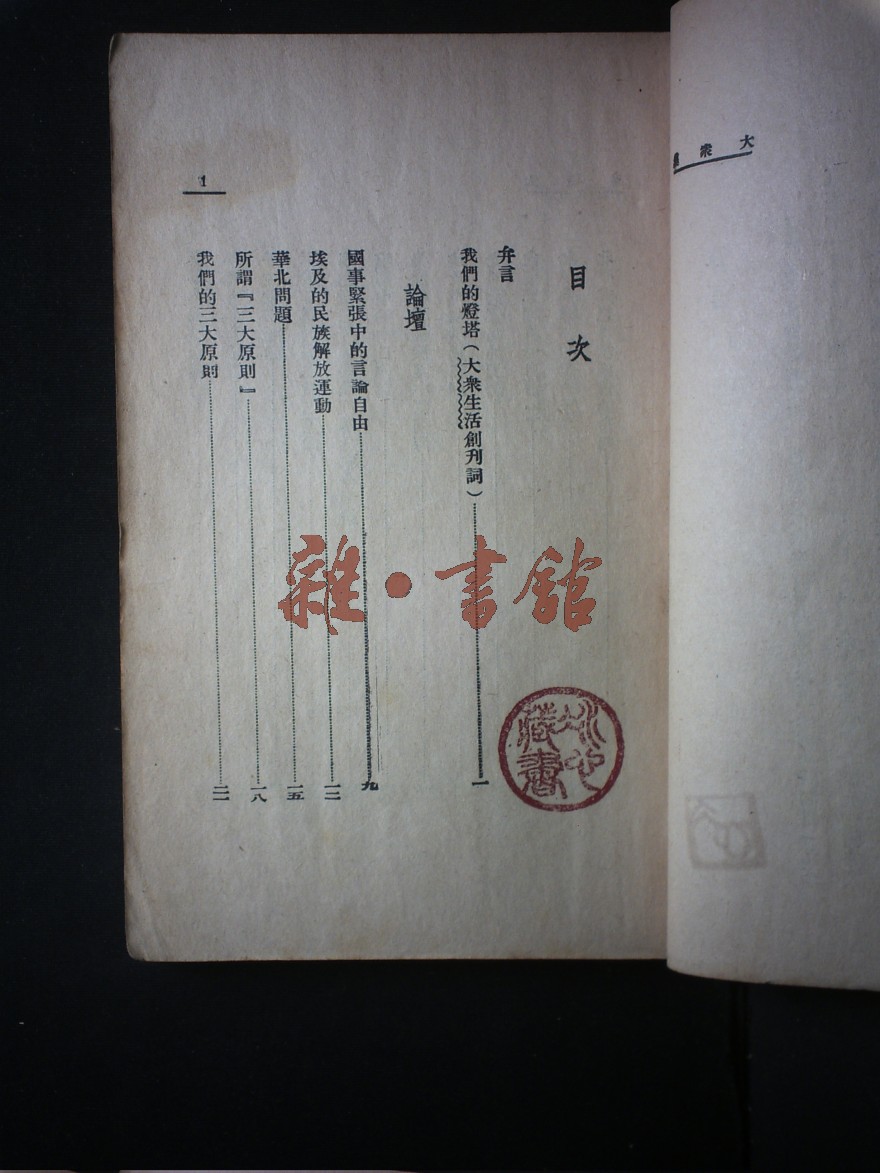 大衆
目次
弁言
我們的燈塔（大衆生活創刊詞）……一
論壇
國事緊張中的言論自由……九
埃及的民族解放運動……一二
華北問題……一五
所謂『三大原則』……一八
我們的三大原則……二一
1
雜·書館
藏書